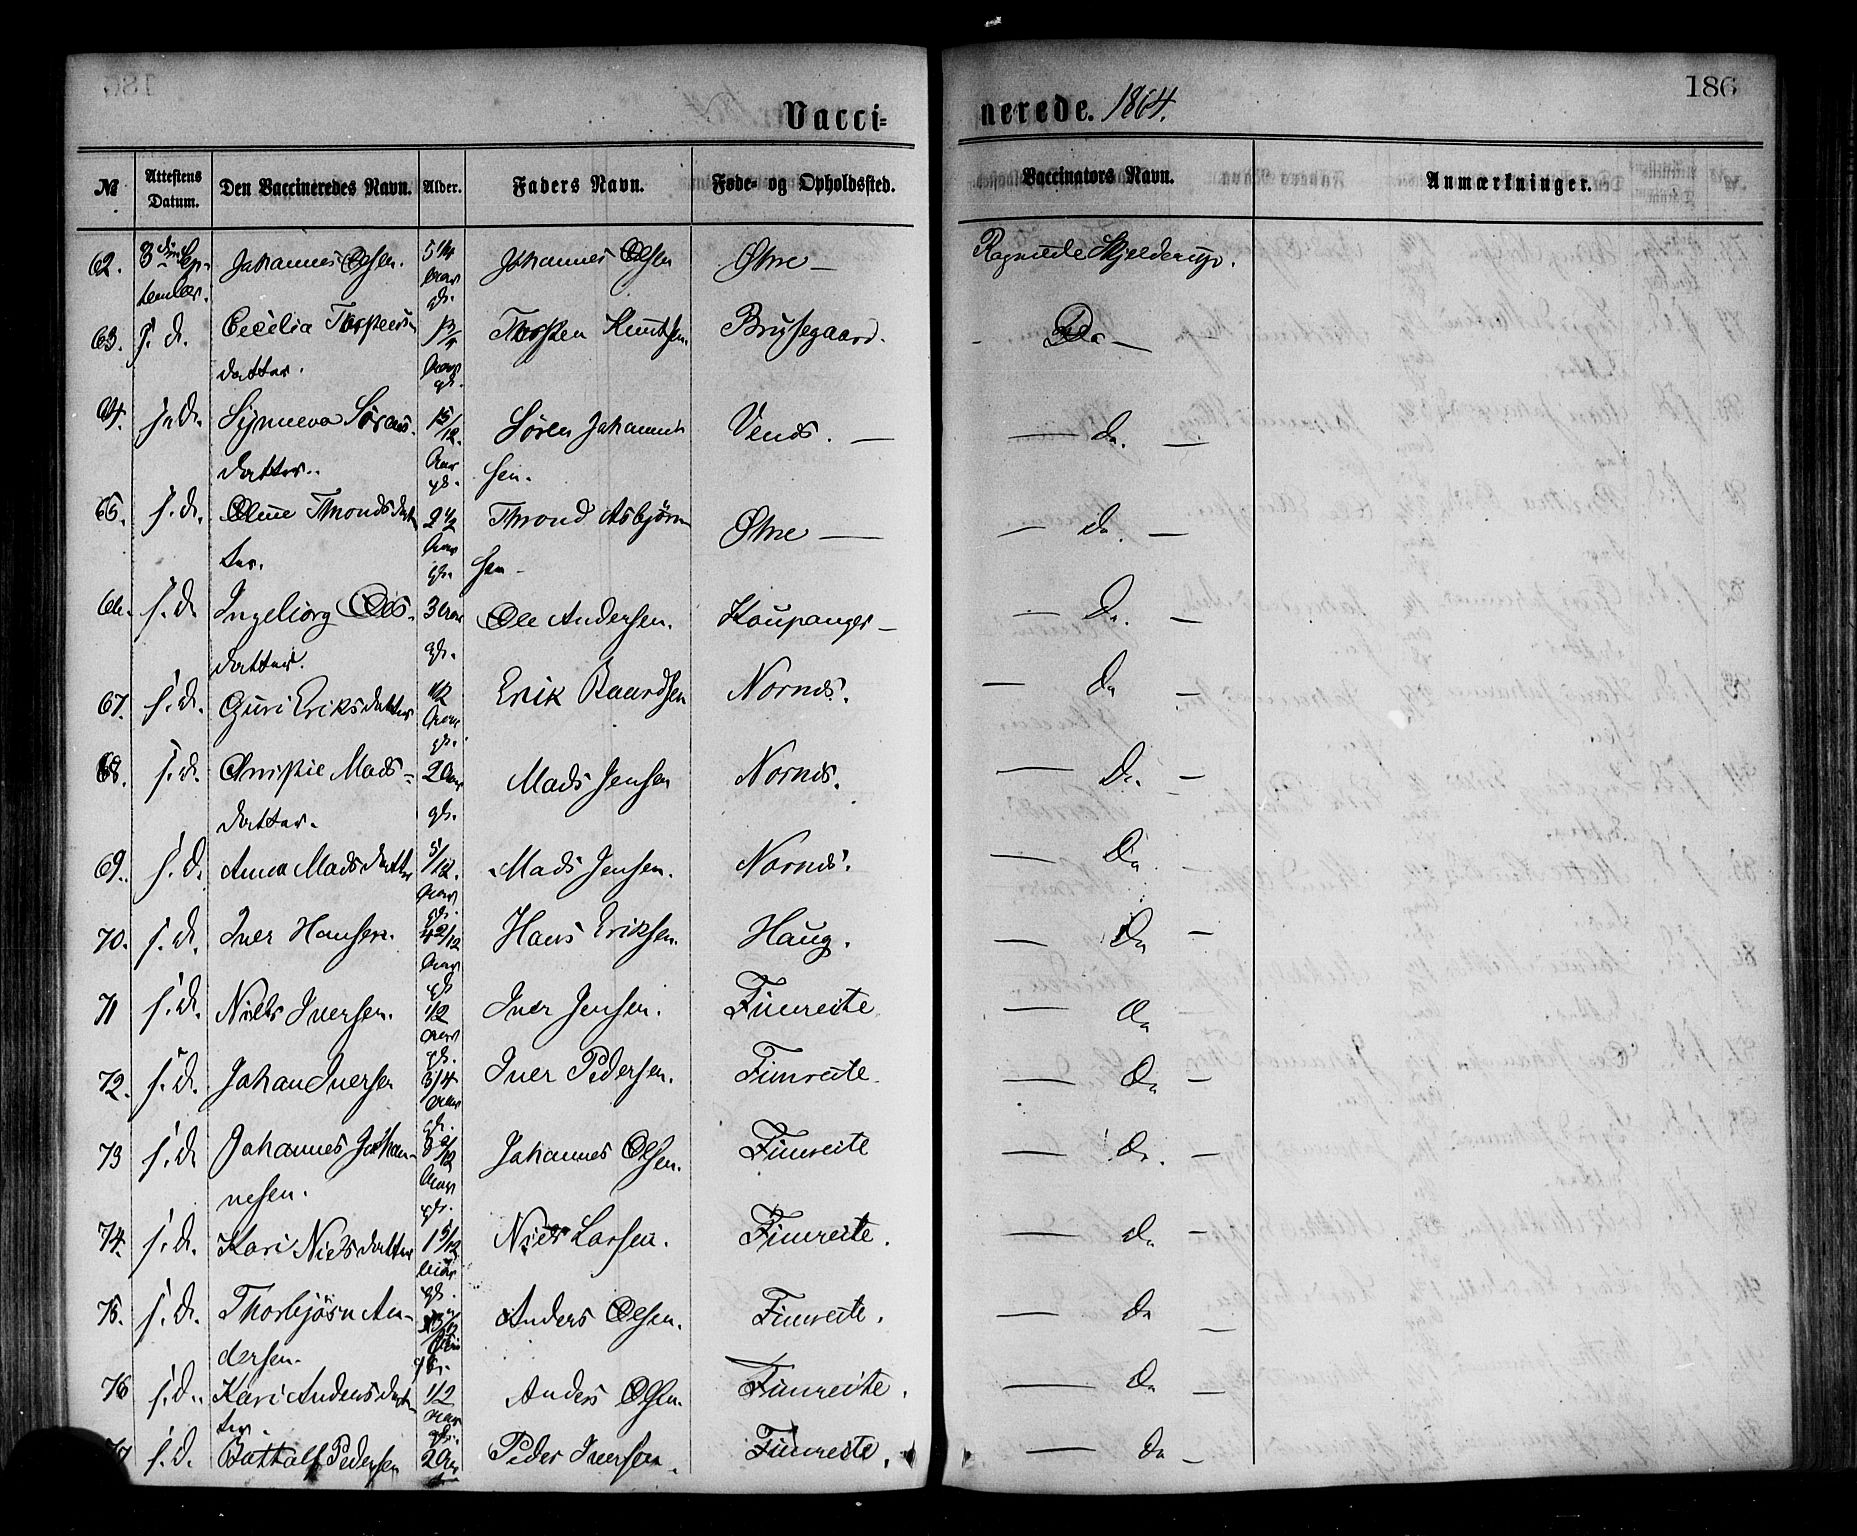 186
Vaccinerede. 1864.
№ Attestens Datum. Den Vaccineredes Navn. Alder. Faders Navn. Føde- og Opholdssted. Vaccinators Navn. Anmærkninger.
62. 3die September. Johannes Olsen. 5 1/4 Aar gl. Johannes Olsen Ølme — Skjelderup.
63. s. d. Cecelia Torstensdatter. Aar gl. Torsten Knutsen Brysegaard. — Do —
64. s. d. Synneva Sørensdatter. 15/12. Aar gl. Søren Johannessen. Vends. — — do. —
65. s. d. Oline Throndsdatter. 2 1/2 Aar gl. Thrond Asbjørnsen — Ølme — — do. —
66. s. d. Ingeborg Olsdatter. 3 Aar gl. Ole Andersen. Kaupanger — — Do. —
67. s. d. Guri Eriksdatter 1/2 Aar gl. Erik Baardsen Nornes. — do —
68. s. d. Christie Madsdatter. 2 Aar gl. Mads Jensen Nornes. — Do. —
69. s. d. Anna Madsdatter 5/12. Aar gl. Mads Jensen. Nornes. — Do. —
70. s. d. Iver Hansen. 4 2/12 Aar gl. Hans Eriksen. Haug. — Do —
71 s. d. Niels Iversen. 1/2 Aar gl. Iver Jensen. Fimreite. — Do
72. s. d. Johan Iversen 3/4 Aar gl. Iver Pedersen. Fimreite. — Do —
73 s. d. Johannes Johannesen. Aar gl. Johannes Olsen. Fimreite — Do. —
74. s. d. Kari Nielsdatter 1 5/12 Aar gl. Niels Larsen. Fimreite. — do —
75. s. d. Thorbjørn Andersen. Anders Olsen. Fimreite. — do —
76 s. d. Kari Andersdatter. 1/2 Aar gl. Anders Olsen. Fimreite. — Do —
77 s. d. Bottolf Pedersen 2 Aar Peder Iversen. Fimreite. — do —